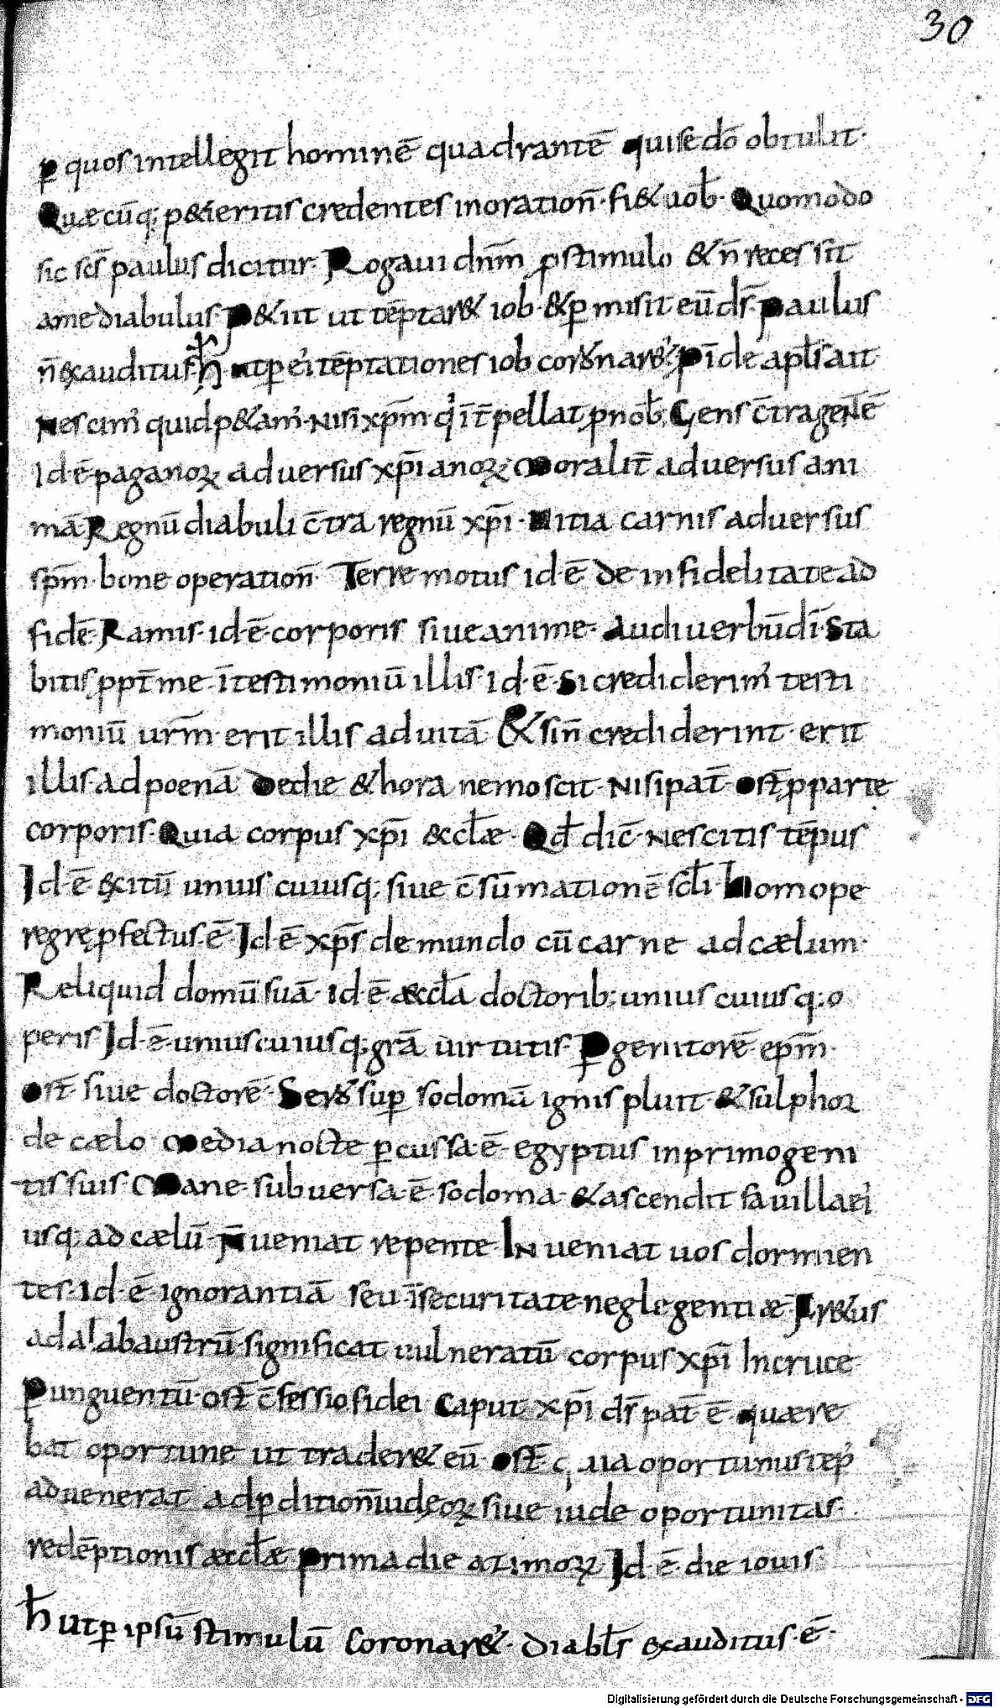 30
ꝑ quos intellegit hominē quadrantē qui se dō obtulit·
Quæcūq; p&ieritis credentes in oratioñ· fi& uob̄· Quomodo
sic scs̄ paulus dicitur· Rogaui dnm̄ ꝓ stimulo & n̄ reces sit̄
a me diabulus· P&iit ut tēptar& iob· &ꝑmisit eū ds̄· paulus
n̄ exauditus· ħ ut ꝑ ei tēptationes iob coronar&· Pīde apl̄s ait
Nescim' quid p&am'· Nisi xp̄m· q'īt̄pellat ꝓ nob̄· Gens c̄tra gentē
Id· ē· paganoꝝ aduersus xp̄ianoꝝ· Moralit̄ aduersus ani
mā Regnū diabuli c̄tra regnū xp̄i· Uitia carnis aduersus
sp̄m· bone operatioñ· Terre motus id· ē· de infidelitate ad
fidē· Ramis· id· ē· corporis siue anime· Audi uerbū dī· Sta
bitis ꝓpt̄ me· ī testimoniū illis· Id· ē· Si crediderim' testi
moniū urm̄· erit illis ad uitā & si n̄ crediderint· erit
illis ad poenā De die & hora nemo scit· Nisi pat̄· ost̄ ꝓ parte
corporis· Quia corpus xp̄i æccl̄æ· Qd̄ dic̄· Nescitis tēpus
Id· ē· exitū unius cuiusq; siue c̄sūmationē scl̄i· homo pe
regre ꝓfectus· ē· Id· ē· xp̄s de mundo cū carne ad cælum·
Reliquid domū suā· id· ē· æccl̄a doctorib; unius cuiusq; o
peris Id· ē· unius cuiusq; grā uirtutis· P genitorē ep̄m·
ost̄ siue doctorē· Sero sup̄ sodomā ignis pluit· & sulphor
de cælo Media nocte ꝑcussa· ē· egyptus in primogeni
tis suis· Mane· subuersa· ē· sodoma· & ascendit fauilla ei
usq; ad cælū· N̄ ueniat repente· Inueniat uos dormien
tes· Id· ē· ignorantiā seu ī securitate neglegentiæ
ad alabaustrū· significat uulneratū corpus xp̄i In cruce·
P unguentū· ost̄ c̄fessio fidei Caput xp̄i ds̄ pat̄· ē· quære
bat oportune ut trader& eū· ost̄ quia oportunus tēp'
aduenerat ad ꝑditionē iudeoꝝ siue iude oportunitas·
redēptionis æccl̄æ prima die atimoꝝ Id· ē· die iouis·
ħ ut ꝑ ipsū stimulū coronar&· diabl̄s exauditus· ē·
Digitalisierung gefördert durch die Deutsche Forschungsgemeinschaft - DFG